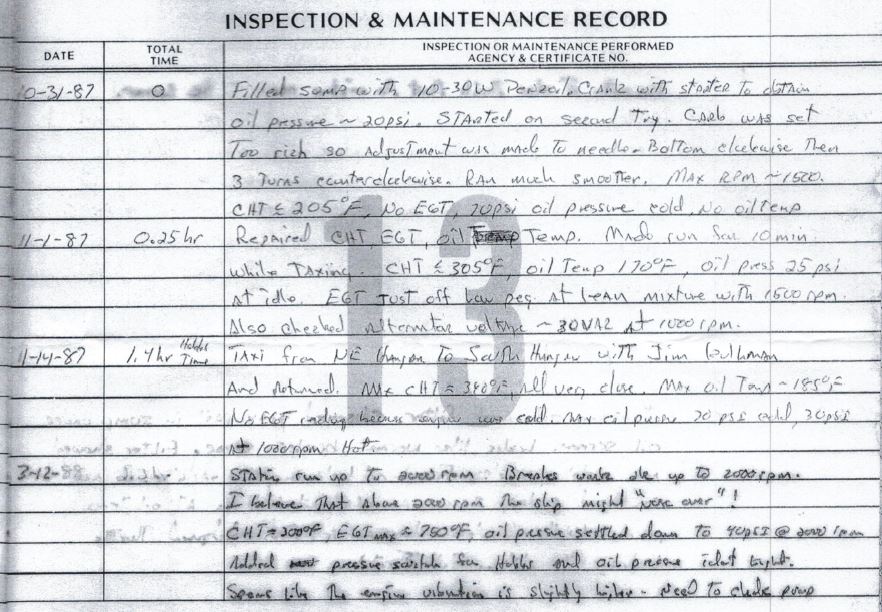 INSPECTION & MAINTENANCE RECORD
DATE TOTAL TIME INSPECTION OR MAINTENANCE PERFORMED AGENCY & CERTIFICATE NO.
13
10-31-87 0 Filled sump with 10-30W Penzoil. Crank with starter to obtain
oil pressure ~ 20psi. Started on second Try. Carb was set
Too rich so Adjustment was made to needle. Bottom clockwise Then
3 Turns counterclockwise. Ran much smoother. Max RPM ~1500.
CHT ≤ 205°F, No EGT, 70psi oil pressure cold, No oil temp
11-1-87 0.25 hr Repaired CHT, EGT, oil Temp. Made run for 10 min.
while Taxing. CHT ≤ 305°F, oil Temp 170°F, oil press 25 psi
At idle. EGT Just off low peg At lean mixture with 1500 rpm.
Also checked Alternator voltage ~ 30VAC At 1000 rpm.
11-14-87 1.4 hr Hobbs Time Taxi from NE Hangar to South Hangar with Jim
And returned. Max CHT ≈ 380°F, All very close. Max oil Temp ~185°F
No EGT readings because engine was cold. Max oil pressure 70 psi cold, 30psi
At 1000 rpm Hot.
3-12-88 Static run up to 2000 rpm. Breakes work ok up to 2000 rpm.
I believe That above 2000 rpm The ship might "nose over"!
CHT=200°F, EGT max ≈ 750°F, oil pressure settled down to 40psi @ 2000 rpm
Added pressure switch for Hobbs and oil pressure idiot light.
Seems like The engine vibration is slightly higher - Need to check prop